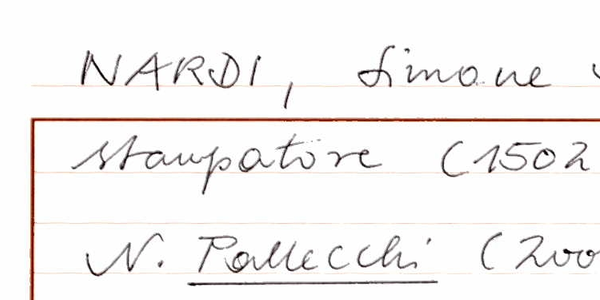 NARDI, Simone
stampatore (1502
N. Pallecchi (200